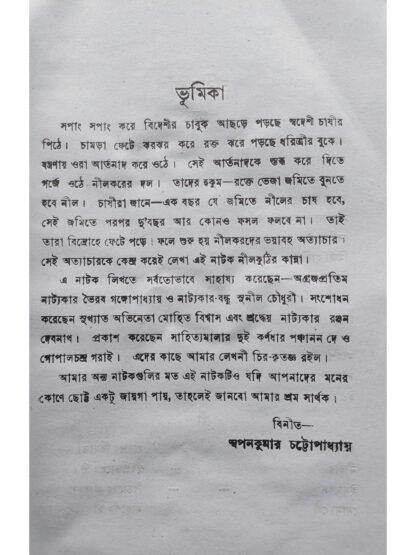 ভূমিকা
সপাং সপাং করে বিদেশীর চাবুক আছড়ে পড়ছে স্বদেশী চাষীর
পিঠে। চামড়া ফেটে ঝরঝর করে রক্ত ঝরে পড়ছে ধরিত্রীর বুকে।
যন্ত্রণায় ওরা আর্তনাদ করে ওঠে। সেই আর্তনাদকে স্তব্ধ করে দিতে
গর্জে ওঠে নীলকরের দল। তাদের হুকুম—রক্তে ভেজা জমিতে বুনতে
হবে নীল। চাষীরা জানে—এক বছর যে জমিতে নীলের চাষ হবে,
সেই জমিতে পরপর দু'বছর আর কোনও ফসল ফলবে না। তাই
তারা বিদ্রোহে ফেটে পড়ে। ফলে শুরু হয় নীলকরদের ভয়াবহ অত্যাচার।
সেই অত্যাচারকে কেন্দ্র করেই লেখা এই নাটক নীলকুঠির কান্না।
এ নাটক লিখতে সর্বতোভাবে সাহায্য করেছেন—অগ্রজপ্রতিম
নাট্যকার ভৈরব গঙ্গোপাধ্যায় ও নাট্যকার-বন্ধু সুনীল চৌধুরী। সংশোধন
করেছেন সুখ্যাত অভিনেতা মোহিত বিশ্বাস এবং শ্রদ্ধেয় নাট্যকার রঞ্জন
দেবনাথ। প্রকাশ করেছেন সাহিত্যমালার দুই কর্ণধার পঞ্চানন দে ও
গোপালচন্দ্র গরাই। এদের কাছে আমার লেখনী চির-কৃতজ্ঞ রইল।
আমার অন্য নাটকগুলির মত এই নাটকটিও যদি আপনাদের মনের
কোণে ছোট্ট একটু জায়গা পায়, তাহলেই জানবো আমার শ্রম সার্থক।
বিনীত—
স্বপনকুমার চট্টোপাধ্যায়